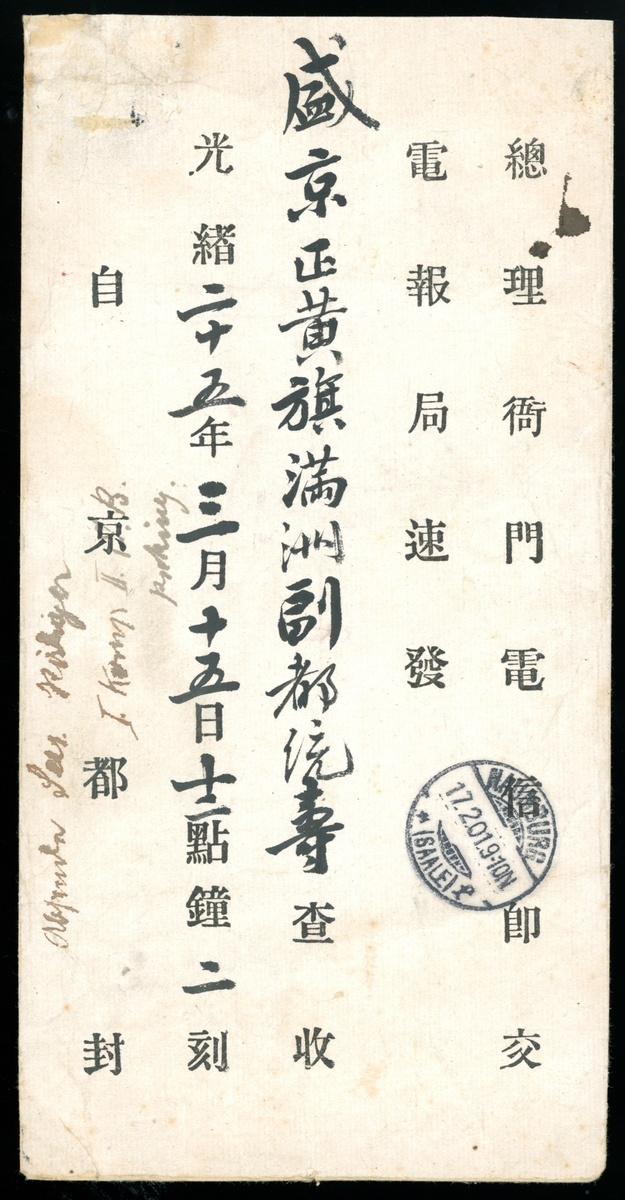 總理衙門電信卽交
電報局速發
盛京正黃旗滿洲副都統壽查收
光緒二十五年三月十五日十二點鐘二刻
自京都封
NAUMBURG
17.2.01.9-10N.
* (SAALE) *
I Komp II
Peking.